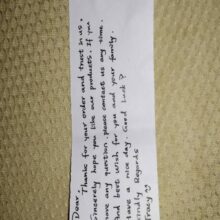 Dear
Thanks for your order and trust in us.
Sincerely hope you like our products. If you
have any question. please contact us any time.
And best wish for you and your family.
Have a nice day. Good Luck
Kindly Regards
Tracy